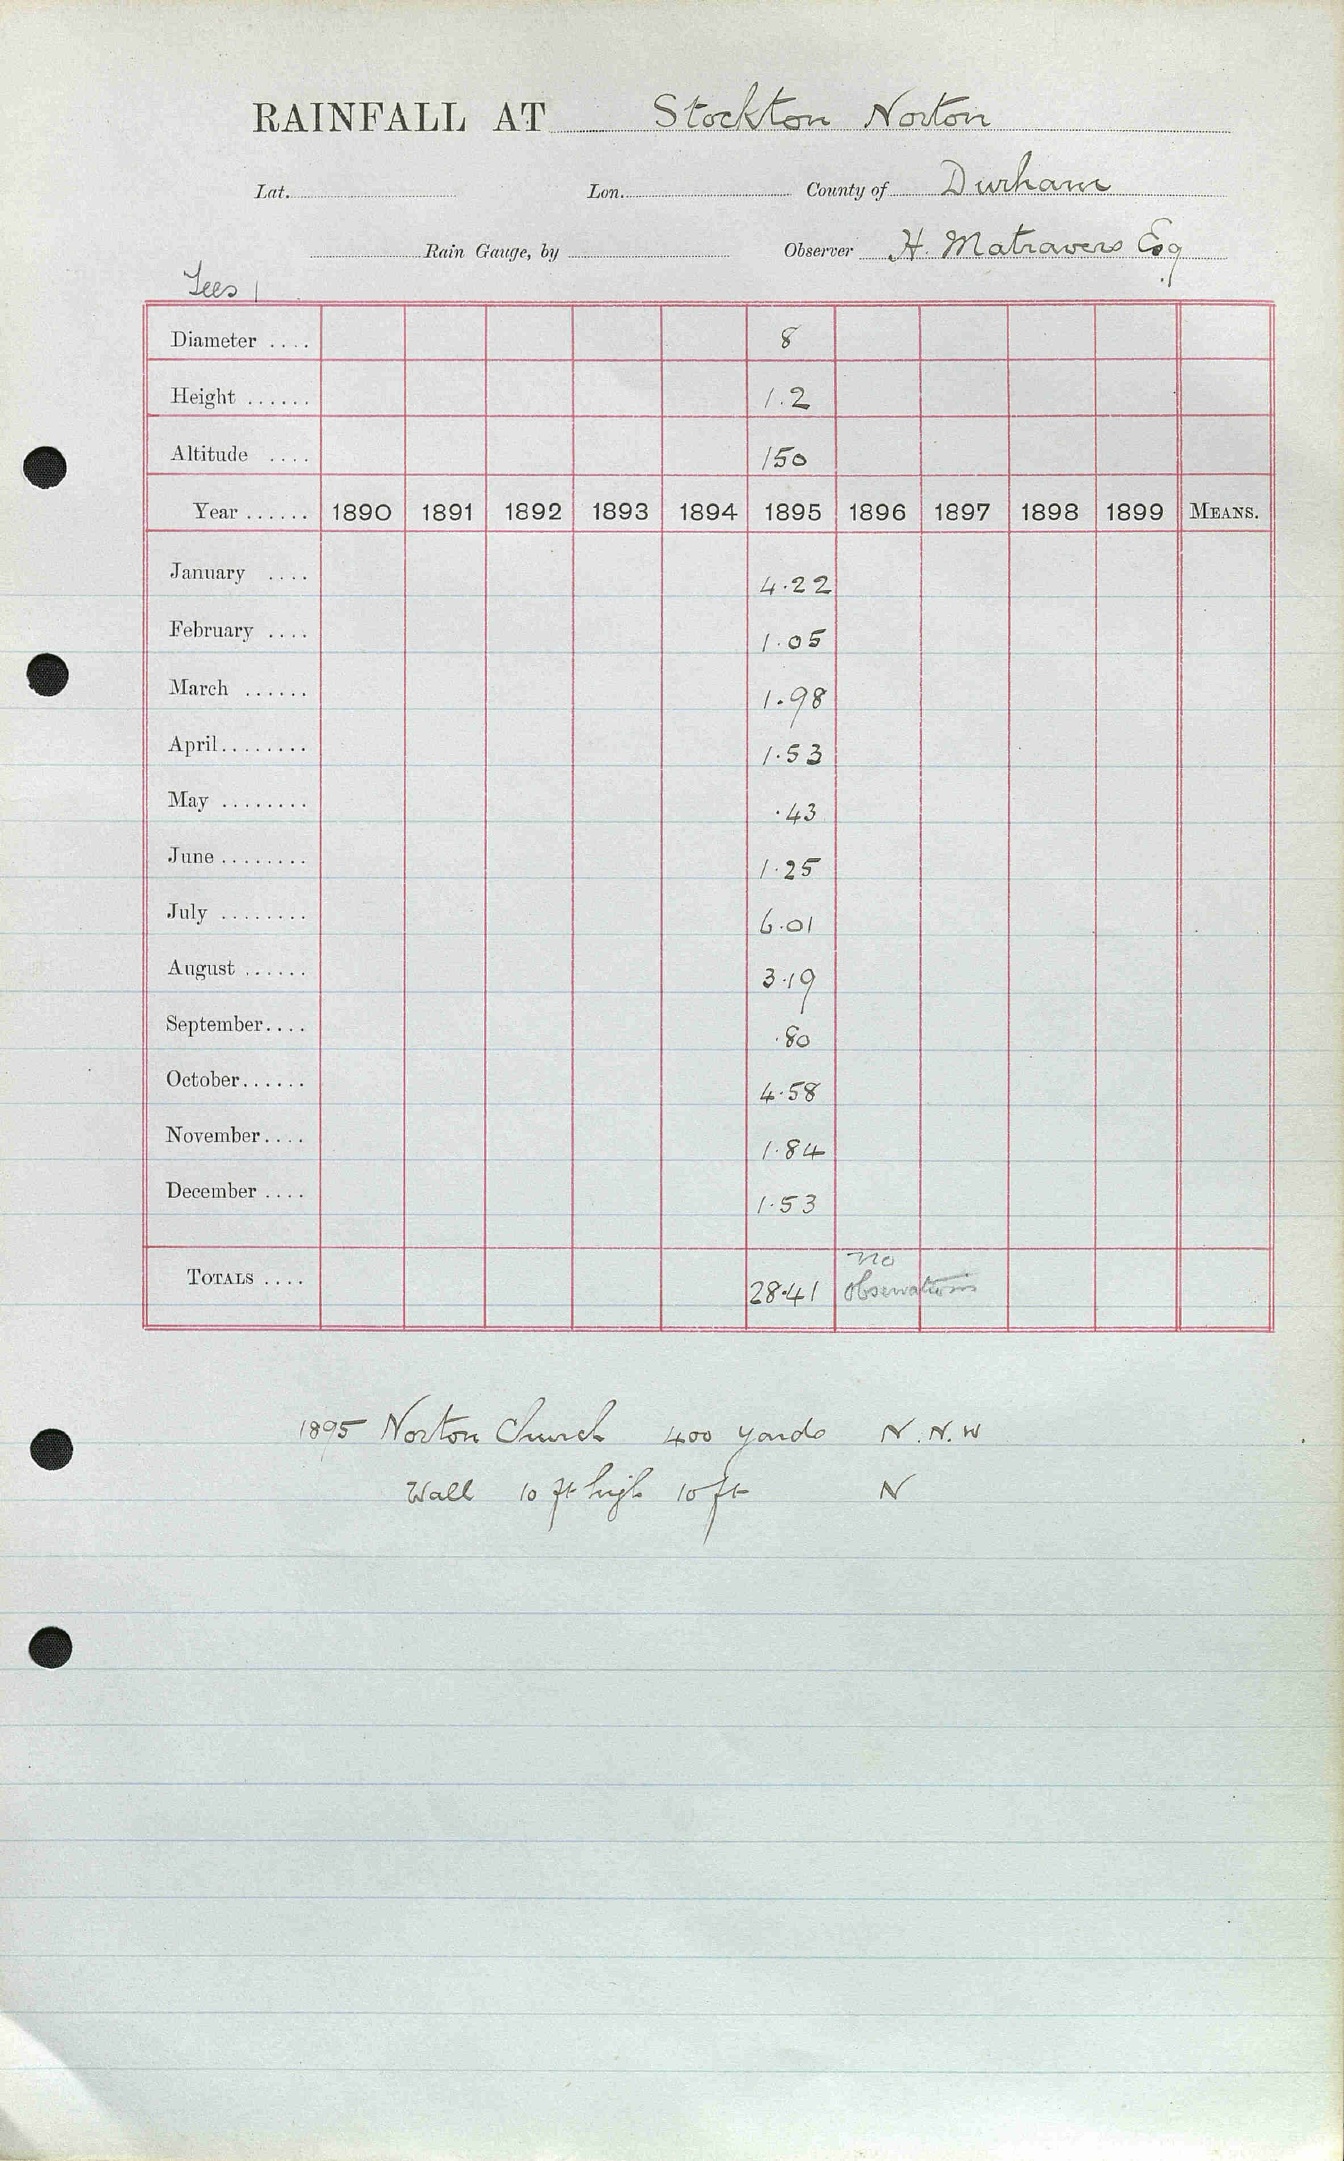 RAINFALL AT Stockton Norton
Lat. Lon. County of Durham
Rain Gauge, by Observer H. Matravers Esq
Tees |
Diameter .... 8
Height ...... 1.2
Altitude .... 150
Year ...... 1890 1891 1892 1893 1894 1895 1896 1897 1898 1899 MEANS.
January .... 4.22
February .... 1.05
March ...... 1.98
April........ 1.53
May ........ .43
June ........ 1.25
July ........ 6.01
August ...... 3.19
September.... .80
October...... 4.58
November.... 1.84
December .... 1.53
TOTALS .... 28.41 no observations
1895 Norton Church 400 yards N.N.W
Wall 10 ft high 10 ft N